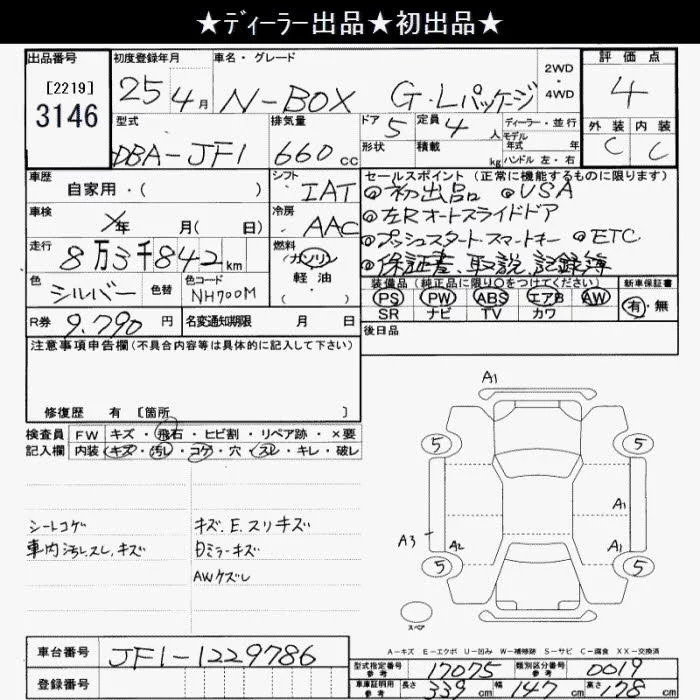 ★ディーラー出品★初出品★
出品番号
[2219]
3146
初度登録年月
25年4月
車名・グレード
N-BOX G・Lパッケージ
2WD
・
4WD
評価点
4
外装 内装
C C
型式
DBA-JF1
排気量
660cc
ドア 5
形状
定員 4人
積載 kg
ディーラー・並行
モデル
年式 年
ハンドル 左・右
車歴
自家用・( )
シフト
IAT
車検
年 月( 日)
冷房
AAC
走行
8万3千842km
燃料
ガソリン
軽油
( ・ )
色
シルバー
色替
色コード
NH700M
R券 9,790円
名変通知期限 月 日
セールスポイント (正常に機能するものに限ります)
◎初出品 ◎USA
◎左Rオートスライドドア
◎プッシュスタート・スマートキー ◎ETC
◎保証書、取説、記録簿
装備品 (純正品に限り○をつけてください)
PS PW ABS エアB AW
SR ナビ TV カワ
新車保証書
有・無
後日品
注意事項申告欄(不具合内容等は具体的に記入して下さい)
修復歴 有 [箇所 ]
検査員
記入欄
FW キズ・飛石・ヒビ割・リペア跡・×要
内装 キズ・汚レ・コゲ・穴・スレ・キレ・破レ
シートコゲ
車内汚レ、スレ、キズ
キズ、E、スリキズ
Dミラーキズ
AWケズレ
A1
5
5
A1
A3
A2
A1
5
5
スペア
A-キズ E-エクボ U-凹み W-補修跡 S-サビ C-腐食 XX-交換済
車台番号
JF1-1229786
登録番号
型式指定番号
参考
17075
類別区分番号
参考
0019
車庫証明用
参考
長さ 339cm 幅 147cm 高さ 178cm